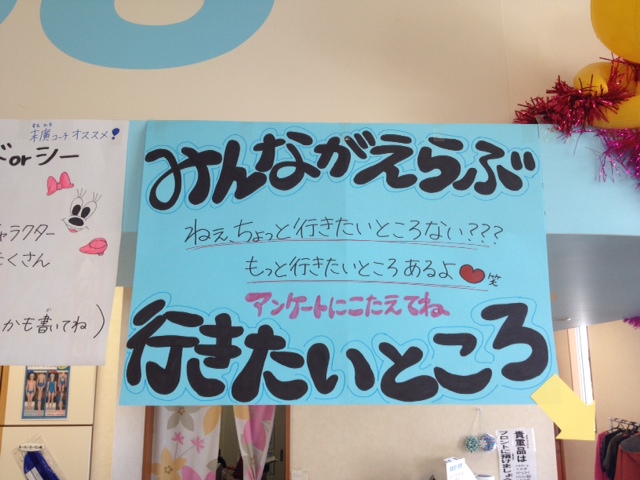 末廣コーチオススメ!
ドorシー
ャラクター
たくさん
かも書いてね)
みんながえらぶ
ねぇ、ちょっと行きたいところない???
もっと行きたいところあるよ♥笑
アンケートにこたえてね
行きたいところ
貴重品は
フロントに預けましょう